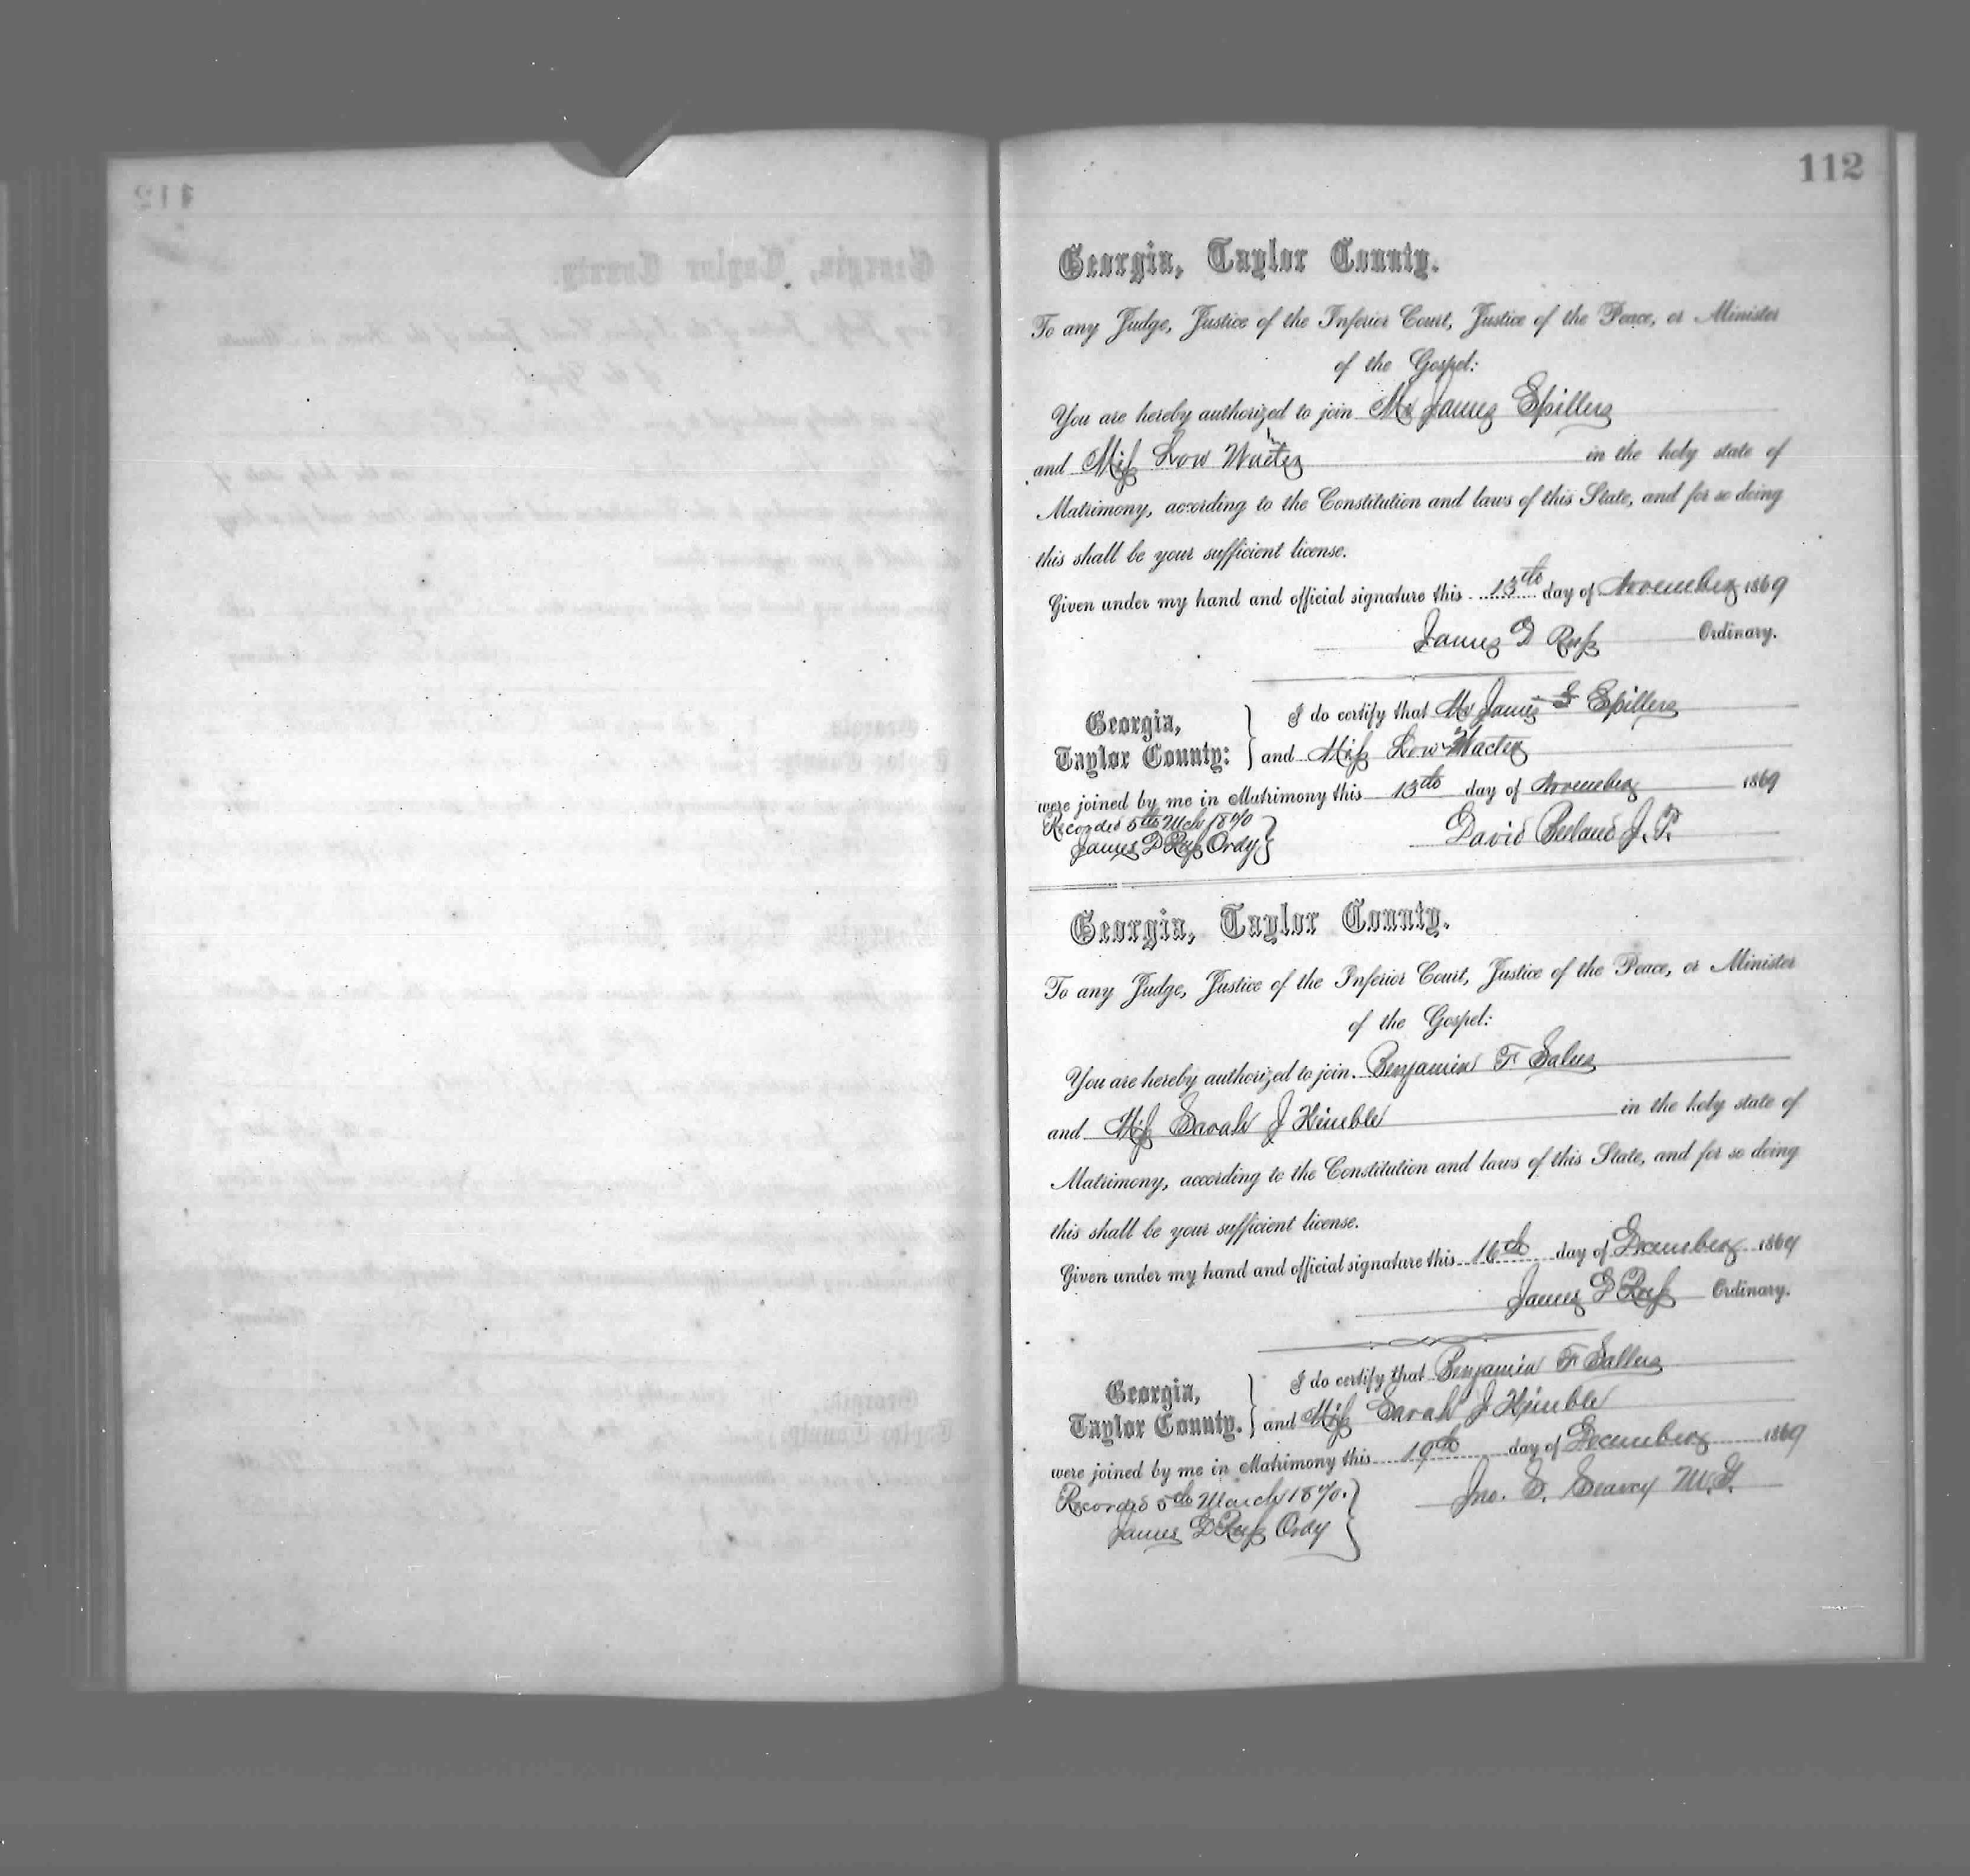 112
Georgia, Taylor County.
To any Judge, Justice of the Inferior Court, Justice of the Peace, or Minister
of the Gospel:
You are hereby authorized to join Mr James Spillers
and Miss Low
in the holy state of
Matrimony, according to the Constitution and laws of this State, and for so doing
this shall be your sufficient license.
Given under my hand and official signature this 13th day of November 1869
James D Russ Ordinary.
Georgia,
Taylor County:
I do certify that Mr James S Spillers
and Miss Low
were joined by me in Matrimony this 13th day of November 1869
Recorded 5th Mch 1870
James D Russ Ordy
David J. P.
Georgia, Taylor County.
To any Judge, Justice of the Inferior Court, Justice of the Peace, or Minister
of the Gospel:
You are hereby authorized to join Benjamin F
and Miss Sarah J Himble in the holy state of
Matrimony, according to the Constitution and laws of this State, and for so doing
this shall be your sufficient license.
Given under my hand and official signature this 16th day of December 1869
James D Russ Ordinary.
Georgia,
Taylor County.
I do certify that Benjamin F Sallers
and Miss Sarah J Himble
were joined by me in Matrimony this 19th day of December 1869
Recorded 5th March 1870.
James D Russ Ordy
Jno. S. Searcy M.G.